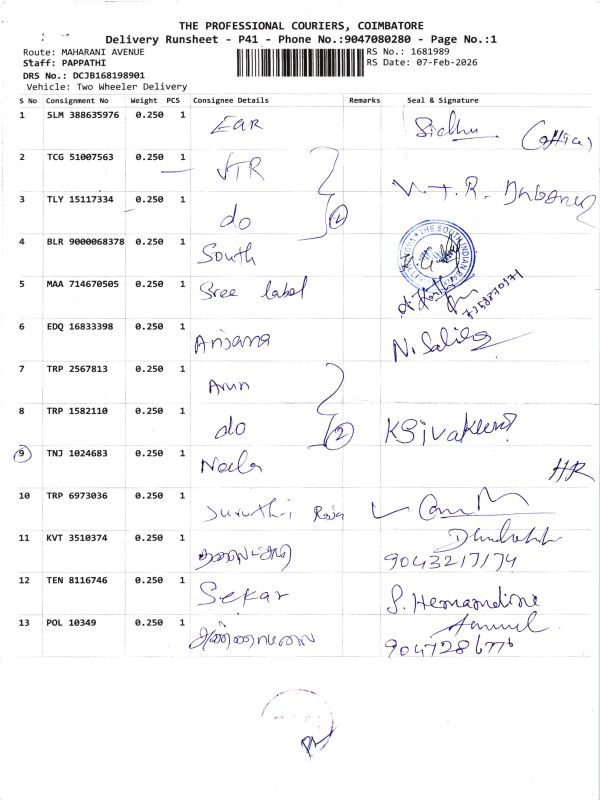 THE PROFESSIONAL COURIERS, COIMBATORE
Delivery Runsheet - P41 - Phone No.:9047080280 - Page No.:1
Route: MAHARANI AVENUE
RS No.: 1681989
Staff: PAPPATHI
RS Date: 07-Feb-2026
DRS No.: DCJB168198901
Vehicle: Two Wheeler Delivery
S No Consignment No Weight PCS Consignee Details Remarks Seal & Signature
1 SLM 388635976 0.250 1 EAR Sidhu (office)
2 TCG 51007563 0.250 1 VTR
3 TLY 15117334 0.250 1 do 2 V.T.R.
4 BLR 9000068378 0.250 1 South THE SOUTH INDIAN
5 MAA 714670505 0.250 1 Sree label
6 EDQ 16833398 0.250 1 Anjana N.
7 TRP 2567813 0.250 1 Arun
8 TRP 1582110 0.250 1 do 2 KSivakumar
9 TNJ 1024683 0.250 1 HR
10 TRP 6973036 0.250 1 Raja
11 KVT 3510374 0.250 1 9043217174
12 TEN 8116746 0.250 1 Sekar
13 POL 10349 0.250 1 அண்ணாமலை 9047286776